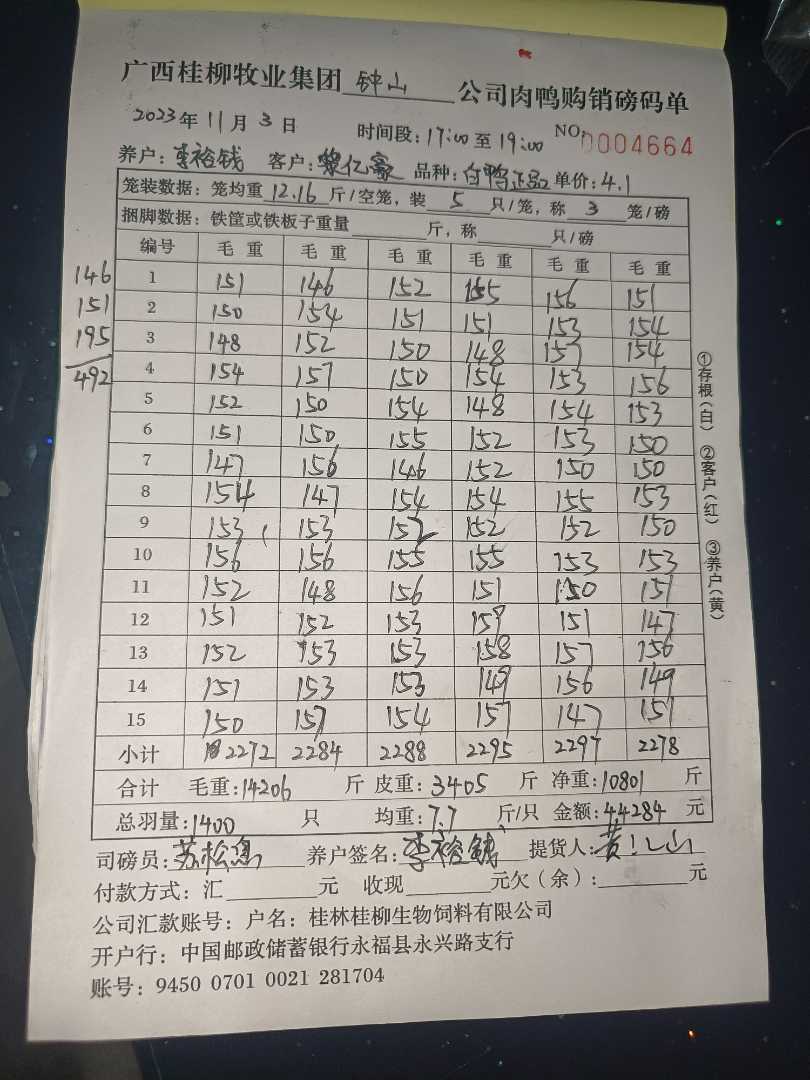 广西桂柳牧业集团 钟山 公司肉鸭购销磅码单
2023年 11月 3日 时间段: 17:00 至 19:00 NO: 0004664
养户: 李裕钱 客户: 黎亿豪 品种: 白鸭正品 单价: 4.1
笼装数据: 笼均重 12.16 斤/空笼, 装 5 只/笼, 称 3 笼/磅
捆脚数据: 铁筐或铁板子重量 斤, 称 只/磅
编号 毛重 毛重 毛重 毛重 毛重 毛重
146
151
195
492
1 151 146 152 155 156 151
2 150 154 151 151 153 154
3 148 152 150 148 157 154
4 154 157 150 154 153 156
5 152 150 154 148 154 153
6 151 150 155 152 153 150
7 147 156 146 152 150 150
8 154 147 154 154 155 153
9 153 153 152 152 152 150
10 156 156 155 155 153 153
11 152 148 156 151 150 151
12 151 152 153 159 151 147
13 152 153 153 158 157 156
14 151 153 153 149 156 149
15 150 157 154 157 147 151
小计 2272 2284 2288 2295 2297 2278
合计 毛重: 14206 斤 皮重: 3405 斤 净重: 10801 斤
总羽量: 1400 只 均重: 7.7 斤/只 金额: 44284 元
司磅员: 养户签名: 李裕钱 提货人:
付款方式: 汇 元 收现 元欠(余): 元
公司汇款账号: 户名: 桂林桂柳生物饲料有限公司
开户行: 中国邮政储蓄银行永福县永兴路支行
账号: 9450 0701 0021 281704
①存根(白) ②客户(红) ③养户(黄)